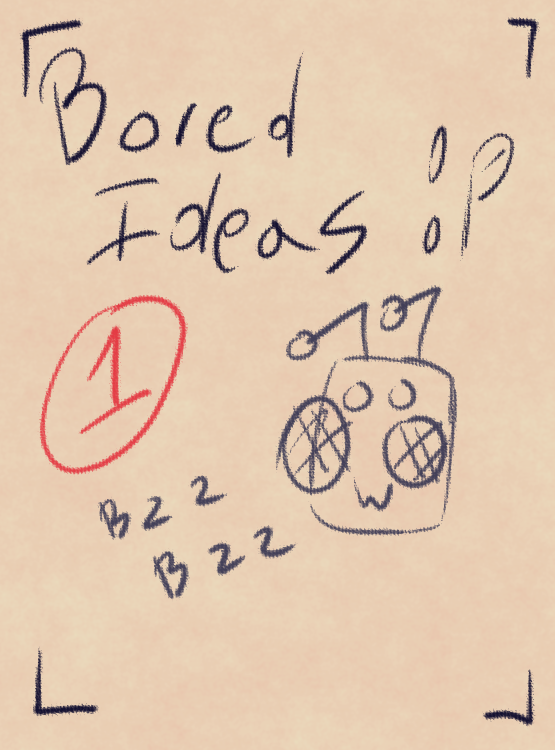 Bored
Ideas :P
1
Bzz
Bzz